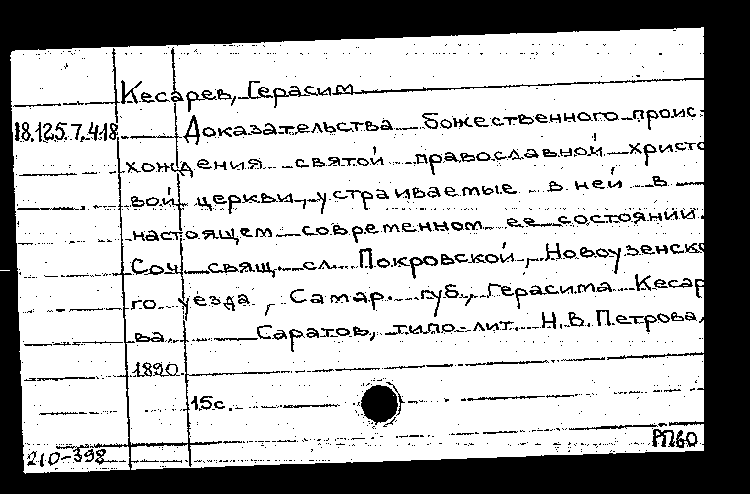 Кесарев, Герасим
18.125.7.418 Доказательства божественного проис-
хождения святой православной христо
вой церкви, устраиваемые в ней в
настоящем современном ее состоянии.
Соч. свящ. сл. Покровской, Новоузенско
го уезда, Самар. губ., Герасима Кесар
ва. Саратов, типо-лит. Н.В. Петрова,
1890.
15с.
210-398 РП60